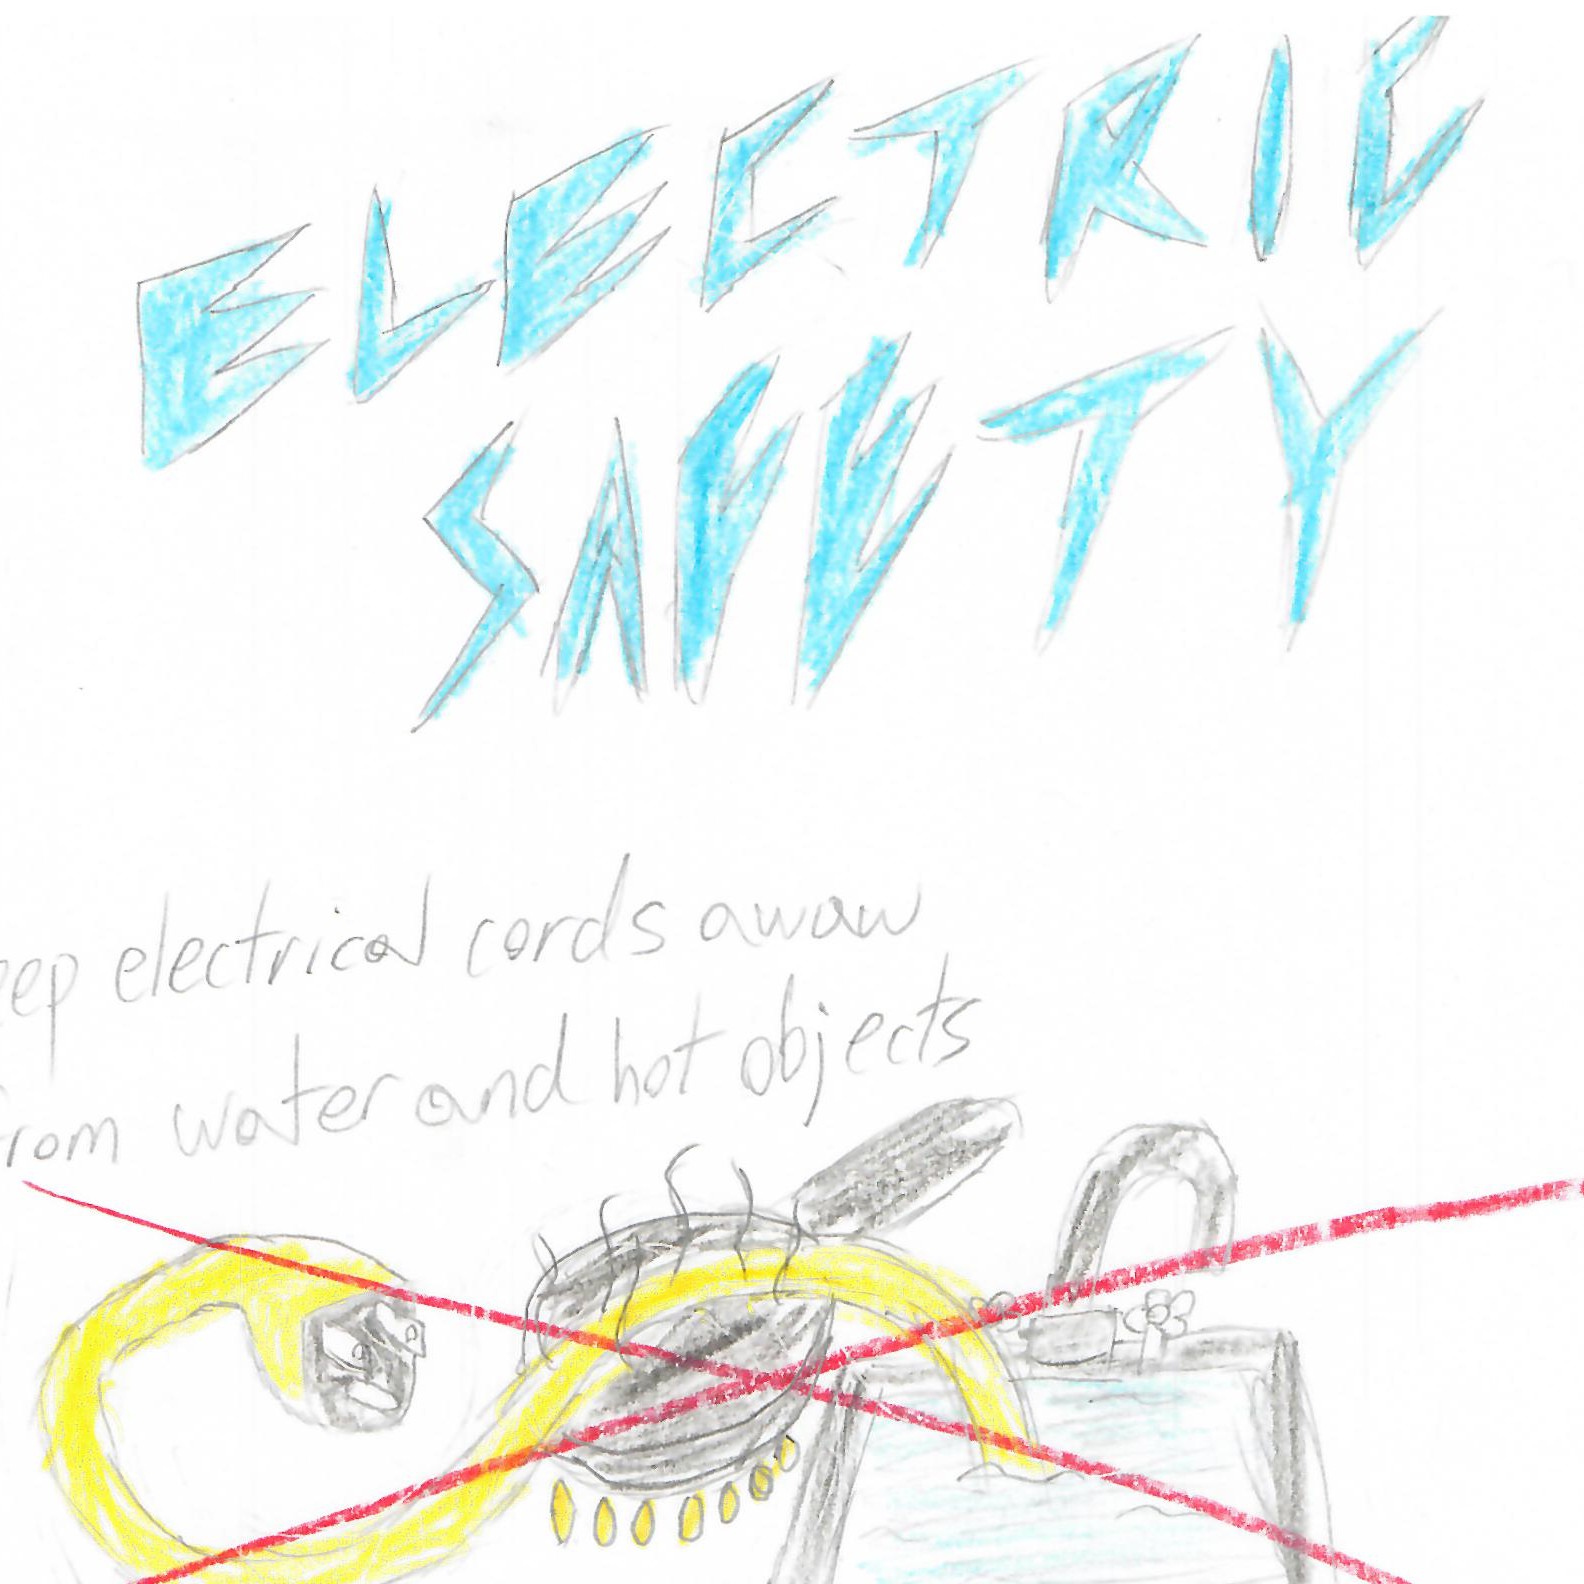 ELECTRIC
SAFETY
eep electrical cords awaw
rom water and hot objects